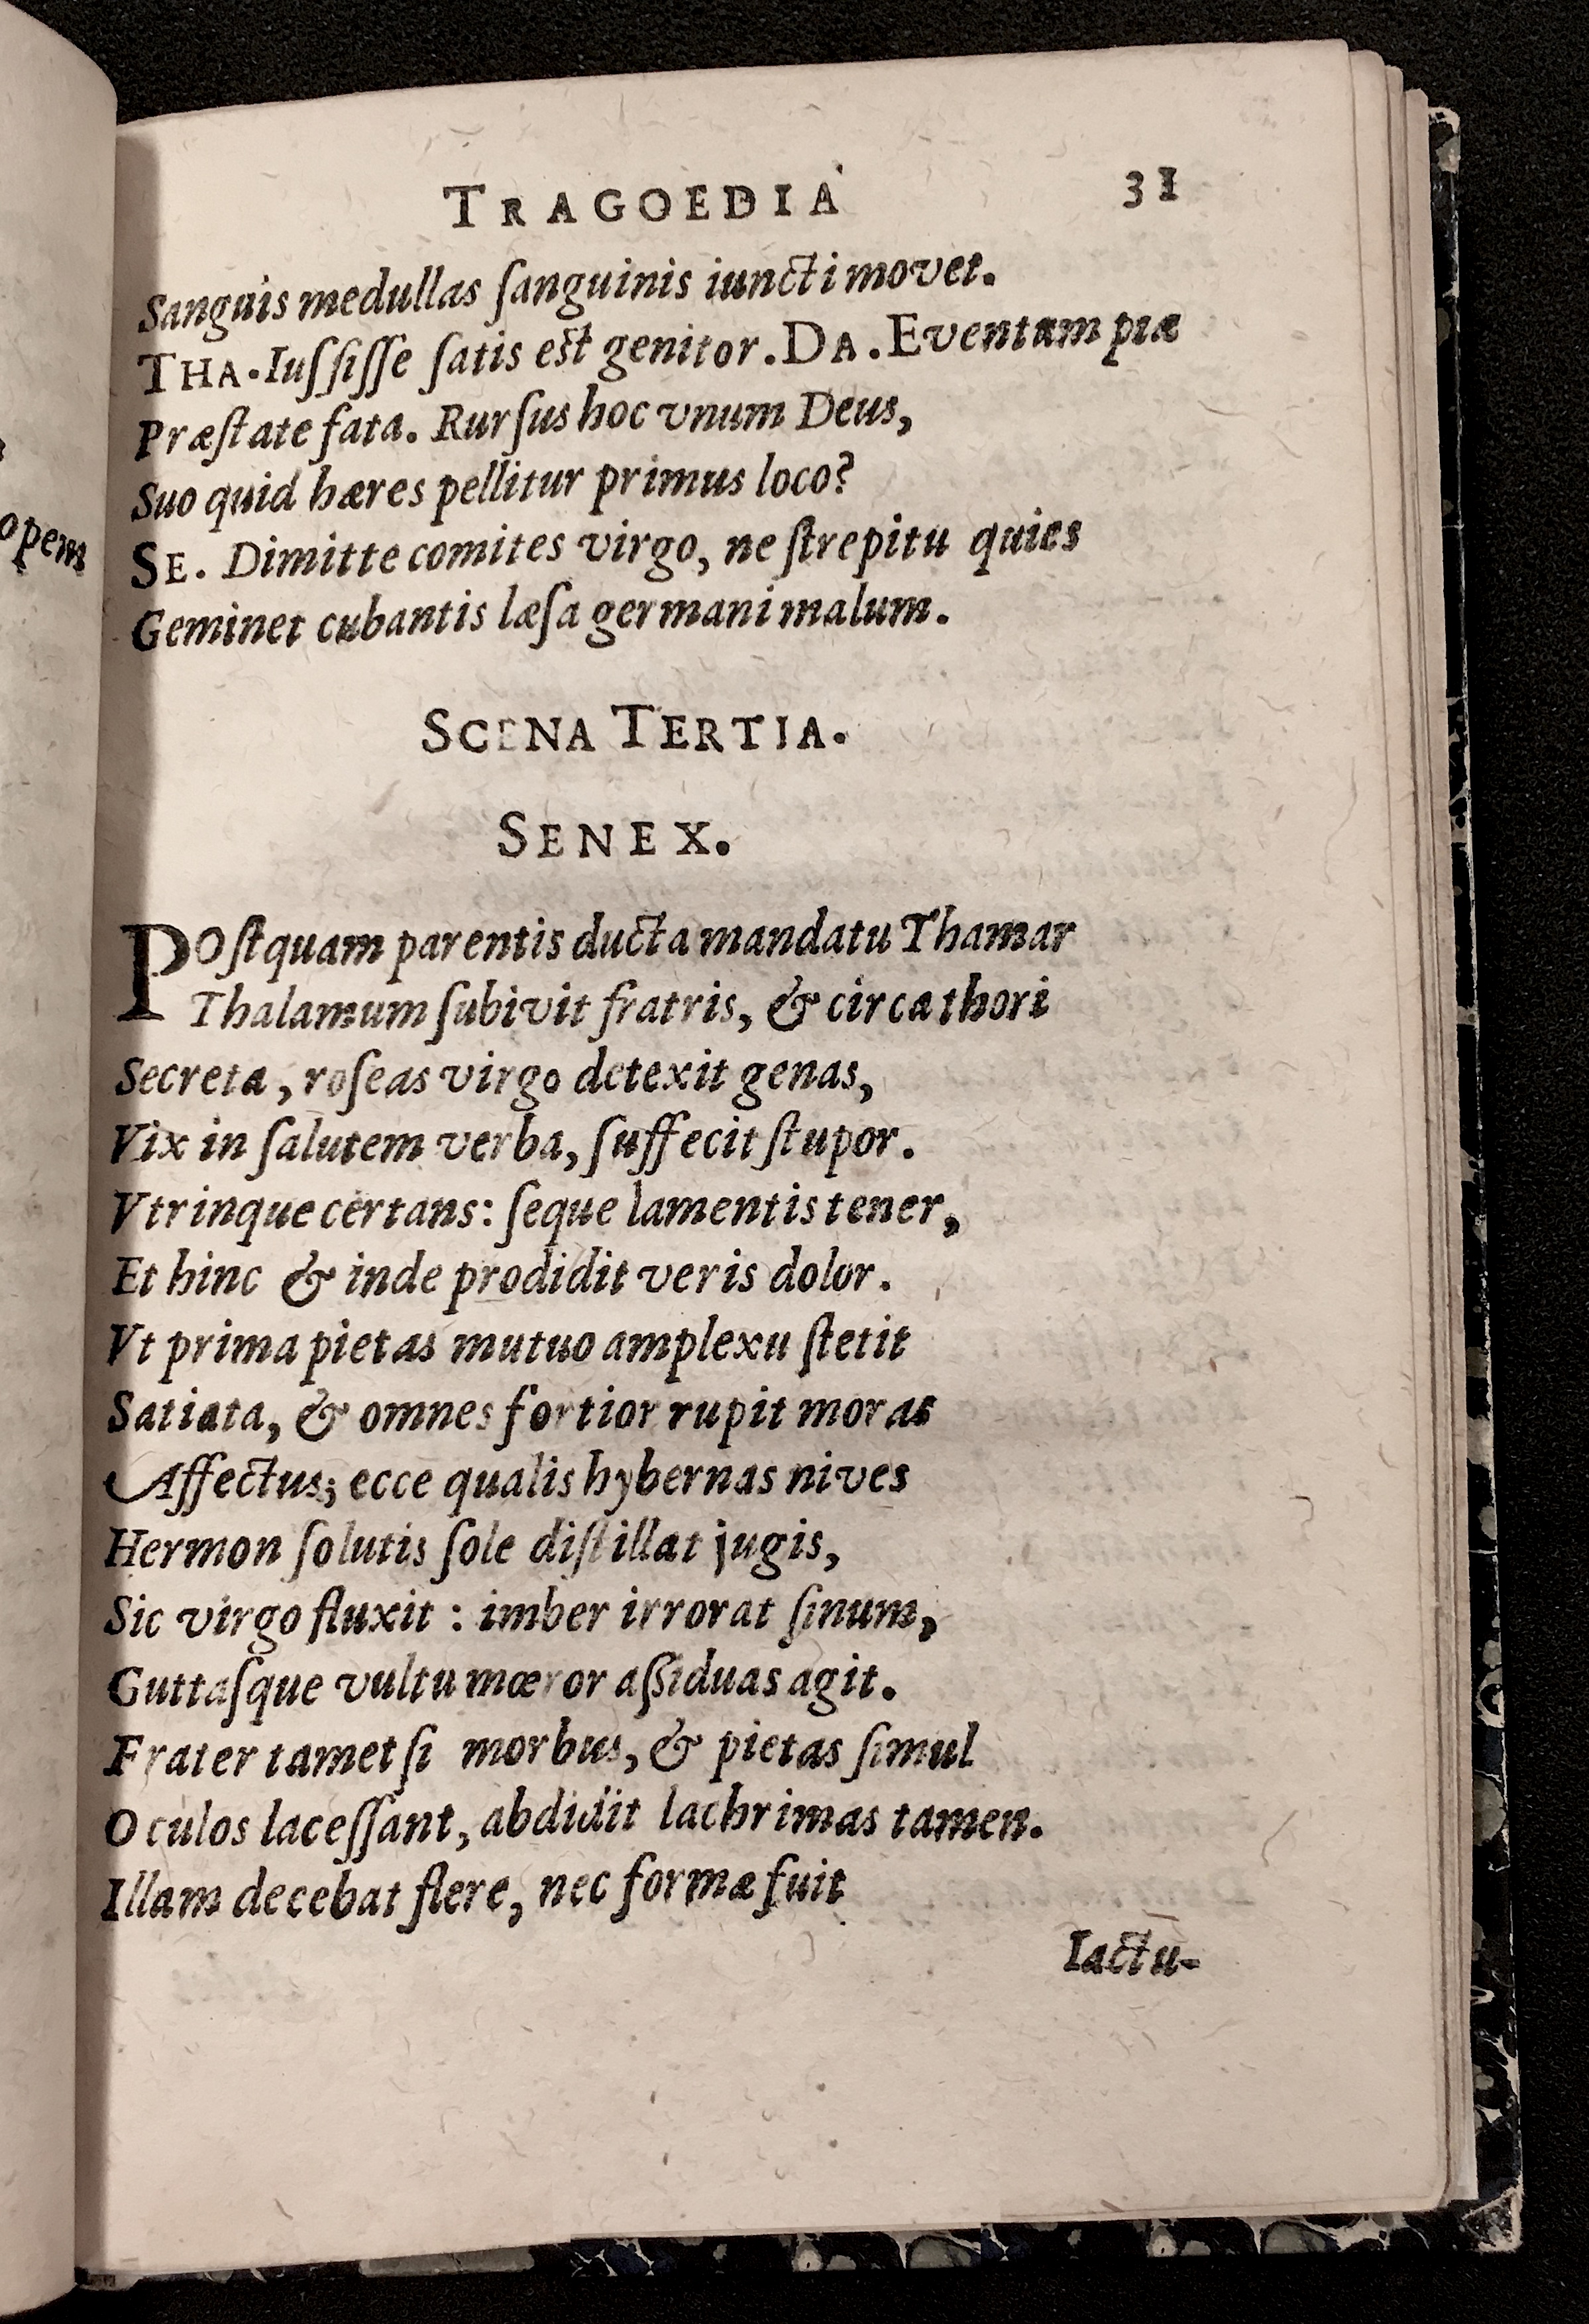 TRAGOEDIA 31
Sanguis medullas ſanguinis iuncti movet.
THA. Iuſſiſſe ſatis est genitor. DA. Eventum piæ
Præſtate fata. Rurſus hoc vnum Deus,
Suo quid hæres pellitur primus loco?
SE. Dimitte comites virgo, ne ſtrepitu quies
Geminet cubantis læſa germani malum.
SCENA TERTIA.
SENEX.
POſtquam parentis ducta mandatu Thamar
Thalamum ſubivit fratris, & circa thori
Secreta, roſeas virgo detexit genas,
Vix in ſalutem verba, ſuffecit ſtupor.
Vtrinque certans: ſeque lamentis tener,
Et hinc & inde prodidit veris dolor.
Vt prima pietas mutuo amplexu ſtetit
Satiata, & omnes fortior rupit moras
Affectus; ecce qualis hybernas nives
Hermon ſolutis ſole diſtillat jugis,
Sic virgo fluxit : imber irrorat ſinum,
Guttaſque vultu mœror aſſiduas agit.
Frater tametſi morbus, & pietas ſimul
Oculos laceſſant, abdidit lachrimas tamen.
Illam decebat flere, nec formæ fuit
Iactu-
opem